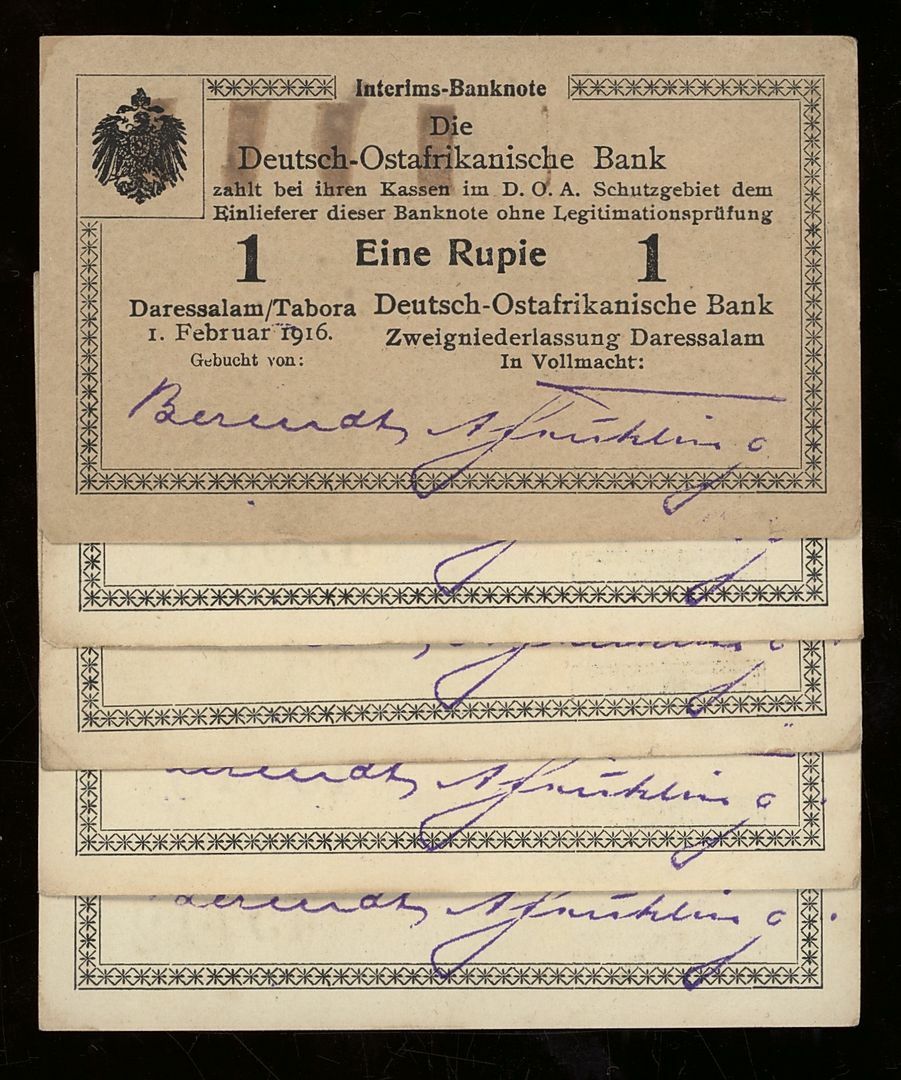 Interims-Banknote
Die
Deutsch-Ostafrikanische Bank
zahlt bei ihren Kassen im D. O. A. Schutzgebiet dem
Einlieferer dieser Banknote ohne Legitimationsprüfung
1 Eine Rupie 1
Daressalam/Tabora
1. Februar 1916.
Gebucht von:
Deutsch-Ostafrikanische Bank
Zweigniederlassung Daressalam
In Vollmacht:
Berendt